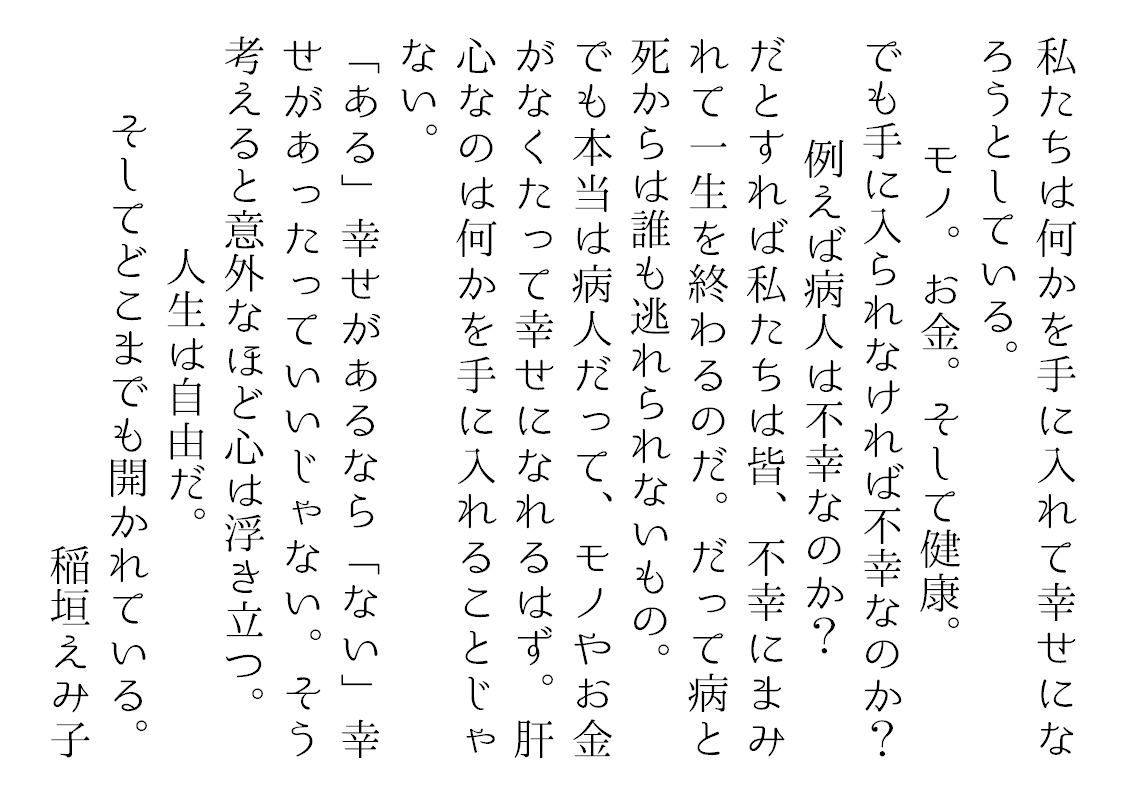 私たちは何かを手に入れて幸せにな
ろうとしている。
モノ。お金。そして健康。
でも手に入られなければ不幸なのか？
例えば病人は不幸なのか？
だとすれば私たちは皆、不幸にまみ
れて一生を終わるのだ。だって病と
死からは誰も逃れられないもの。
でも本当は病人だって、モノやお金
がなくたって幸せになれるはず。肝
心なのは何かを手に入れることじゃ
ない。
「ある」幸せがあるなら「ない」幸
せがあったっていいじゃない。そう
考えると意外なほど心は浮き立つ。
人生は自由だ。
そしてどこまでも開かれている。
稲垣えみ子